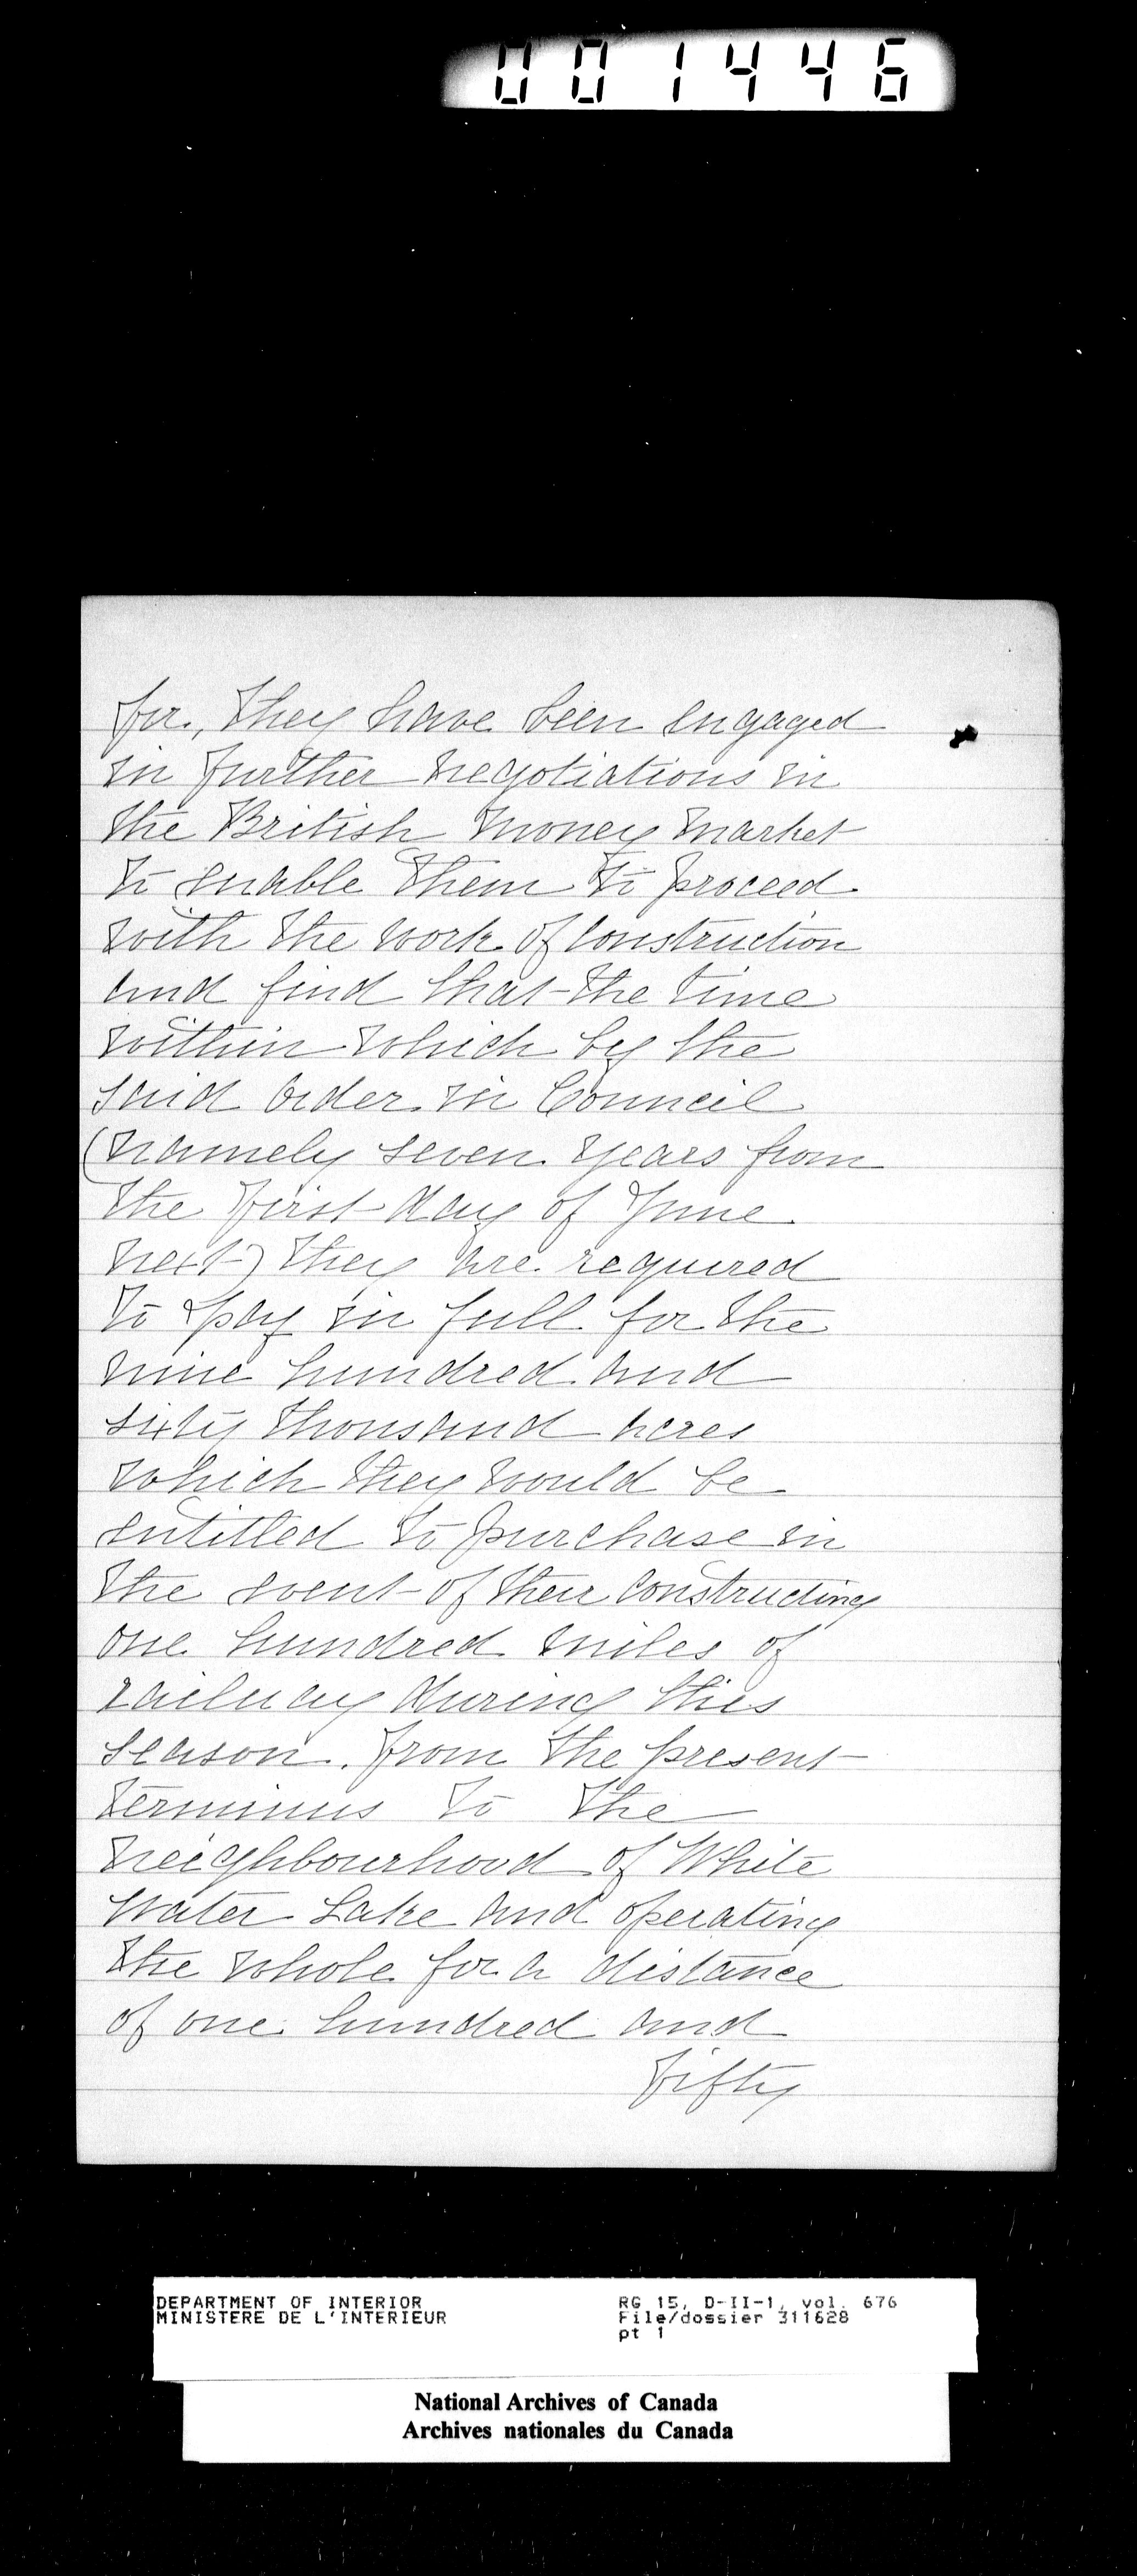 001446
for, they have been engaged
in further negotiations in
the British money market
to enable them to proceed
with the work of construction
and find that the time
within which by the
said Order in Council
(namely seven years from
the first day of June
next) they are required
to pay in full for the
nine hundred and
sixty thousand acres
which they would be
entitled to purchase in
the event of their constructing
one hundred miles of
railway during this
season, from the present
terminus to the
neighbourhood of White
Water Lake and operating
the whole for a distance
of one hundred and
fifty
DEPARTMENT OF INTERIOR
MINISTERE DE L'INTERIEUR
RG 15, D-II-1, vol. 676
File/dossier 311628
pt 1
National Archives of Canada
Archives nationales du Canada